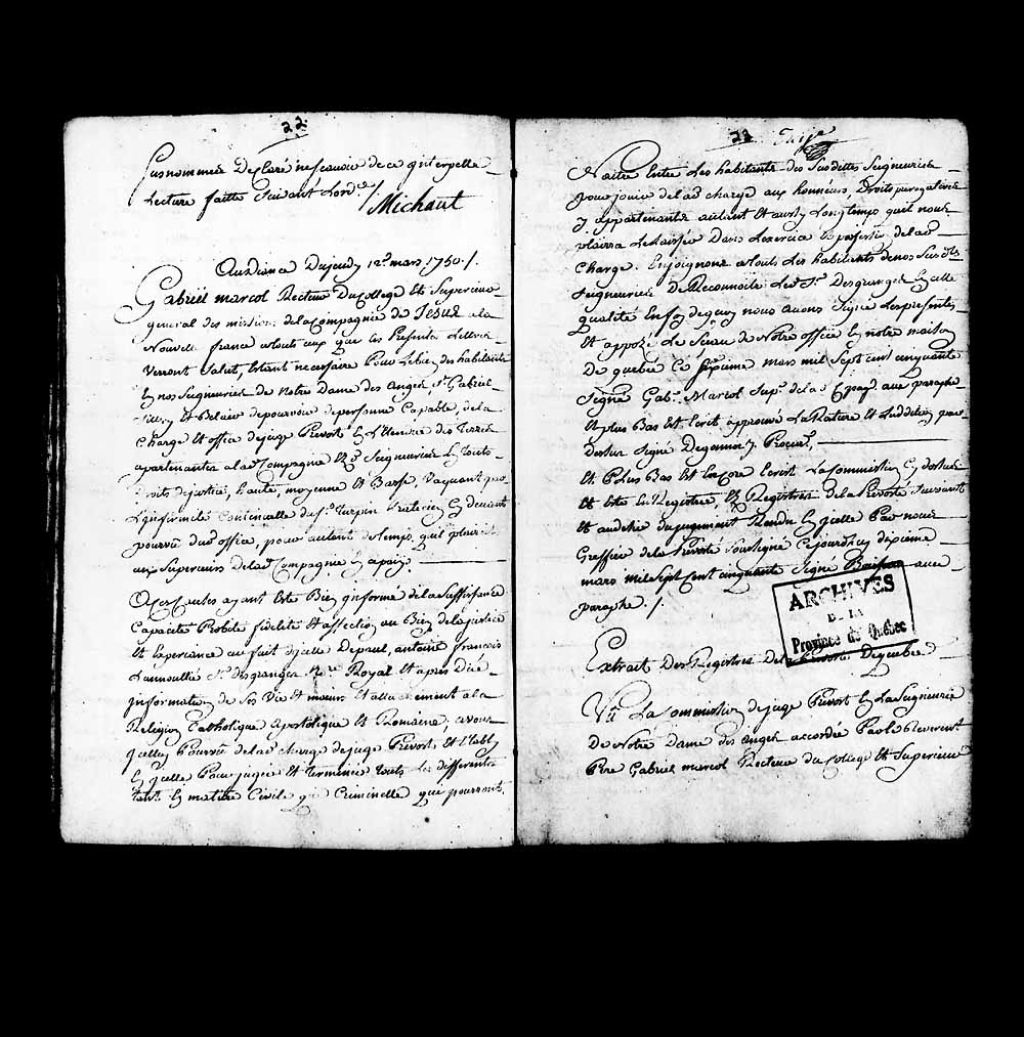 22
Susnommés Declaré ne scavoir de ce qu'interpellé
Lecture faitte Suivant Lord.ce
Michaut
Audiance Du jeudy 12e. mars 1750 /.
Gabriël marcol Recteur Du College Et Superieur
general des missions de la Compagnie de Jesus a la
Nouvelle france a touts ceux que ces Presentes Lettres
Verront Salut, Estant necessaire Pour Le bien des habitants
En nos Seigneuries de Notre Dame des anges, St. Gabriel
Sillery Et Belair de pourvoir de personne Capable, de la
Charge Et office de juge Prevost En L'Etendue des Terres
apartenantes a lad. Compagnie Et Seigneuries En touts
Droits de justice, haute, moyenne Et Basse, Vaquant par
L'infirmité Continuelle du Sr. Turpin En devant
pourvû dud. office, pour autant de temps qu'il plaira
aux Superieurs De lad. Compagnie
a Ces Causes ayant Este Bien informé de la Suffisance
Capacité Probité fidelité Et affection au Bien de la justice
Et Experiance au fait d'icelle De paul, antoine françois
Lanoullier Sr. Desgranges No.re Royal Et apres Due
information de Ses Vie Et moeurs Et attachement a la
Religion Catholique apostolique Et Romaine, avons
icelluy Pourvû de lad. charge de juge Prevost, Et l'Etably
En icelle Pour juger Et terminer touts Les differents
tant En matiere Civile que Criminelle qui pourront
23
Naitre Entre Les habitants des Susdittes Seigneuries
pour jouir de lad. charge aux honneurs, Droits prerogatives
y appartenants autant Et aussy Longtemps quil nous
plaira Le Laisser Dans Lexercice de lad.
Charge. Enjoignons a touts Les habitants de nos Susdts.
Seigneuries De Reconnoitre Led. Sr. Desgranges En telle
qualité En foy de quoy nous avons Signé Les presentes
Et apposé Le Sceau de Notre office En notre maison
De quebec Ce Sixieme mars mil Sept cent cinquante
Signé Gab. Marcol Sup. de la avec paraphe
Et plus Bas Est Ecrit, approuvé La Rature Et
dessus Signé Degonnor Procur.
Et Plus Bas Est Encore Ecrit La Commission Cy dessus
Et Este En Registrée, Es Registres de la Prevosté Suivant
Et au desir du jugement Rendu En icelle Par nous
Greffier de la Prevosté Soussigné Ce jourd'huy dixieme
mars mil Sept Cent cinquante Signé Boisseau avec
paraphe. /.
ARCHIVES
DE LA
Province de Québec
Extrait Des Registres De la Prevosté De quebec
Vû La Commission de juge Prevost En La Seigneurie
De Notre Dame des anges accordée Par le Reverent
Pere Gabriel marcol Recteur du College Et Superieur